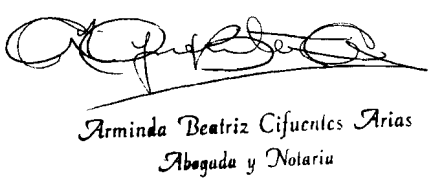 Arminda Beatriz Cifuentes Arias
Abogada y Notaria